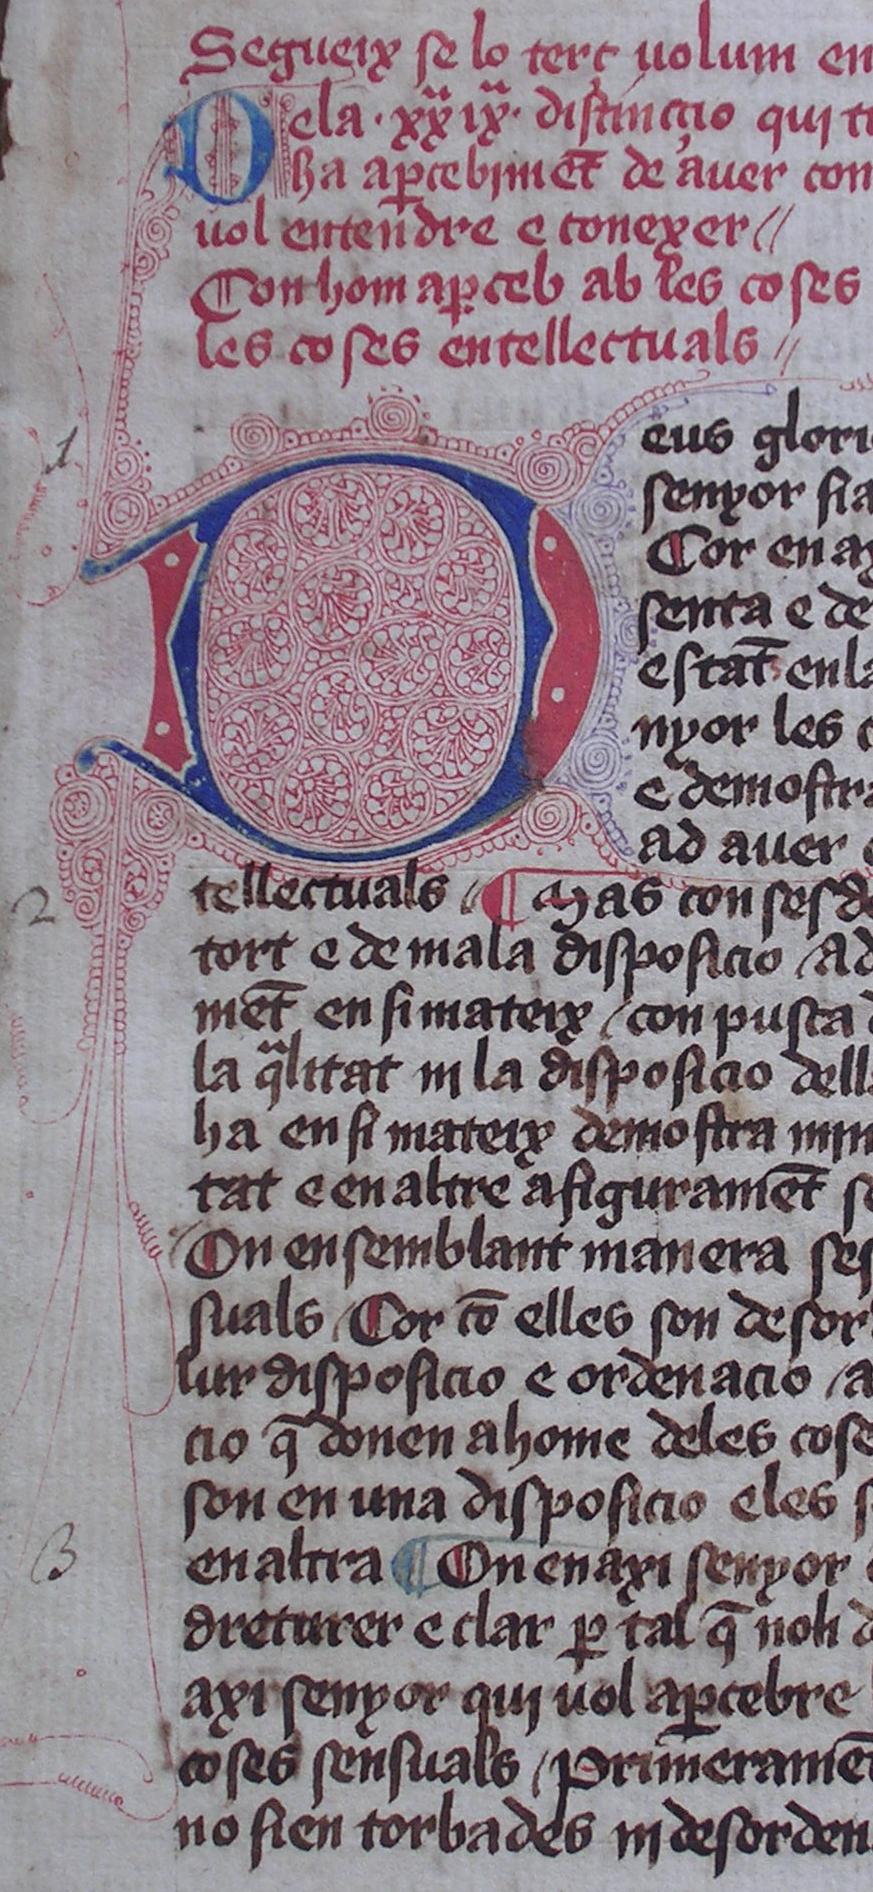 Segueix se lo terç uolum en
Dela · xxix · distinccio qui t
ha ap̲cebimēt de auer con
uol entendre e conexer //
Con hom ap̲ceb ab les coses
les coses entellectuals //
Deus glori
senyor sia
1
Cor en ax
senta e de
estāt en la
nyor les c
e demostra
ad auer
tellectuals // ¶ Mas con ses de
2
tort e de mala disposicio / ad
mēt en si mateix / con pusca
la q̄litat ni la disposicio dell
ha en si mateix demostra
tat e en altre afiguramēt se
On en semblant manera ses
suals / Cor cō elles son desor
lur disposicio e ordenacio / a
cio q̄ donen a home deles cose
son en una disposicio e les s
en altra ¶ On en axi senyor
3
dreturer e clar p̲ tal q̄ noli d
axi senyor qui uol ap̲cebre
coses sensuals / Primeramēt
no sien torbades ni desorden